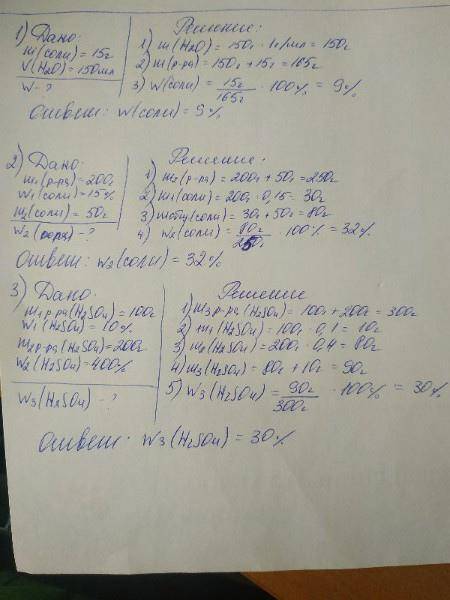 1) Дано:
m(соли) = 15г
V(H2O) = 150мл
w - ?
Решение:
1) m(H2O) = 150г · 1г/мл = 150г
2) m(р-ра) = 150г + 15г = 165г
3) w(соли) = 15г/165г · 100% = 9%
Ответ: w(соли) = 9%
2) Дано:
m1(р-ра) = 200г
w1(соли) = 15%
m2(соли) = 50г
w2 - ?
Решение:
1) m2(р-ра) = 200г + 50г = 250г
2) m1(соли) = 200г · 0,15 = 30г
3) mобщ(соли) = 30г + 50г = 80г
4) w2(соли) = 80г/250г · 100% = 32%
Ответ: w2(соли) = 32%
3) Дано:
m1 р-ра(H2SO4) = 100г
w1(H2SO4) = 10%
m2 р-ра(H2SO4) = 200г
w2(H2SO4) = 400%
w3(H2SO4) - ?
Решение
1) m3 р-ра(H2SO4) = 100г + 200г = 300г
2) m1(H2SO4) = 100г · 0,1 = 10г
3) m2(H2SO4) = 200г · 0,4 = 80г
4) m3(H2SO4) = 80г + 10г = 90г
5) w3(H2SO4) = 90г/300г · 100% = 30%
Ответ: w3(H2SO4) = 30%